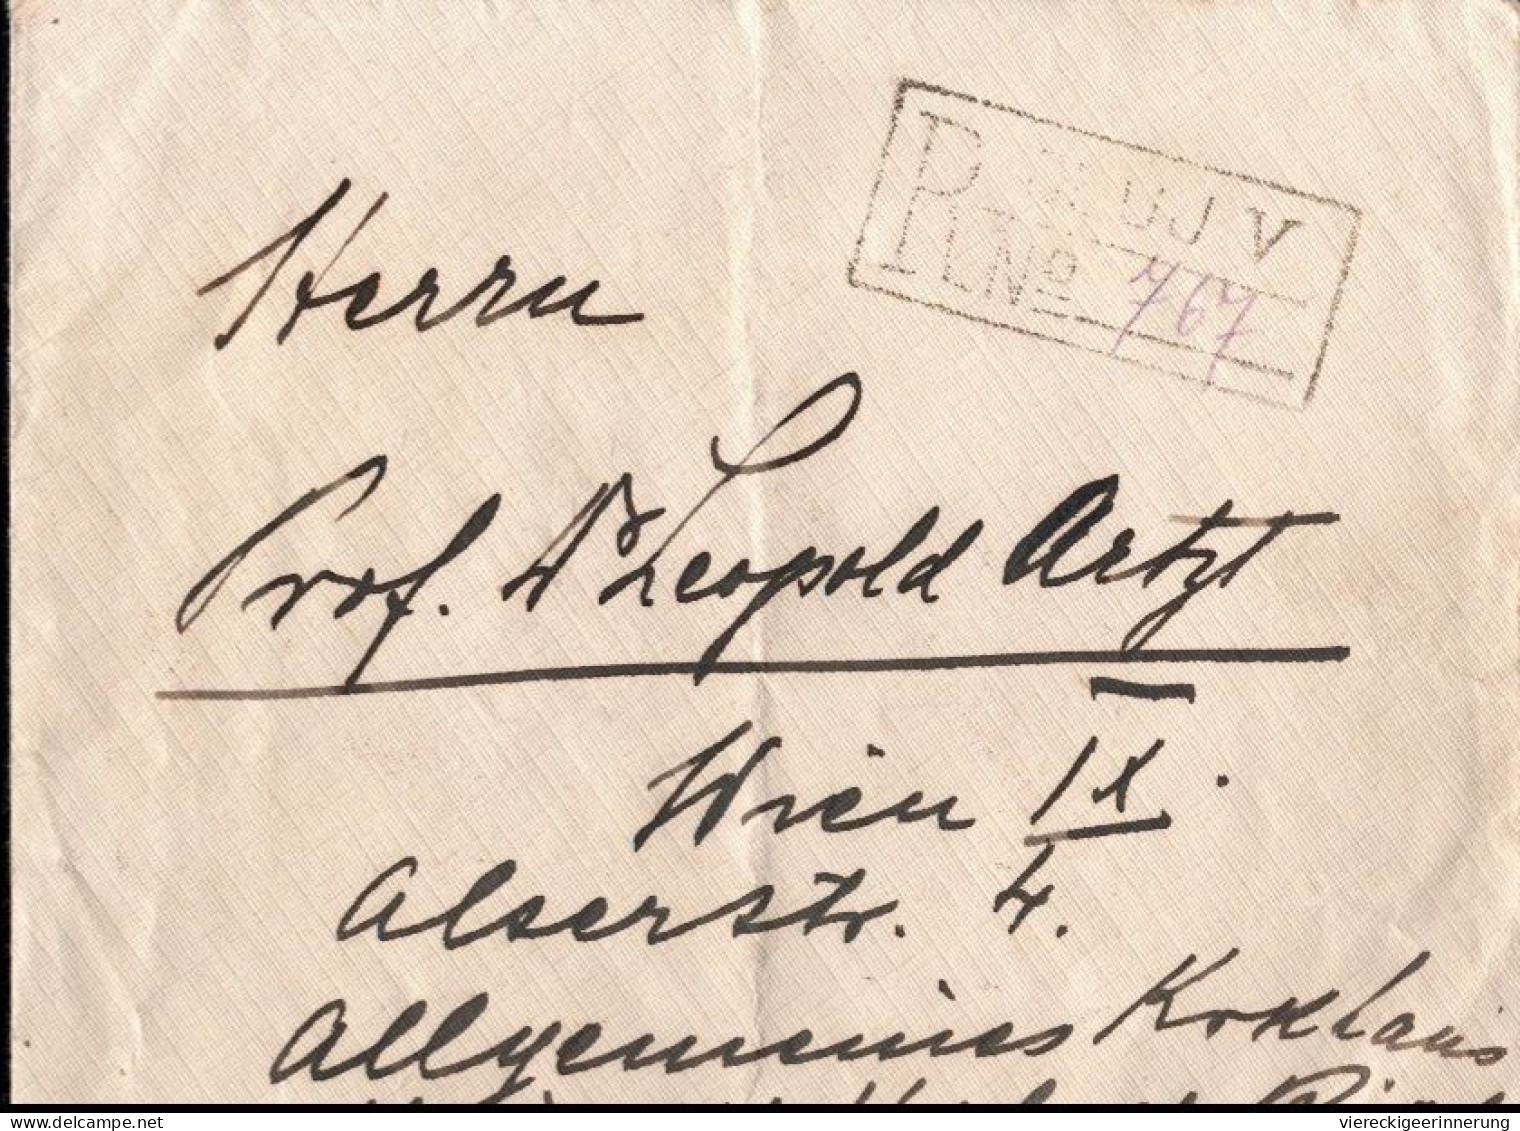 R CLUJ V
No 767
Herrn
Prof. Dr Leopold Artzt
Wien IX.
Alserstr. 4.
Allgemeines Krkhaus
viereckigeerinnerung